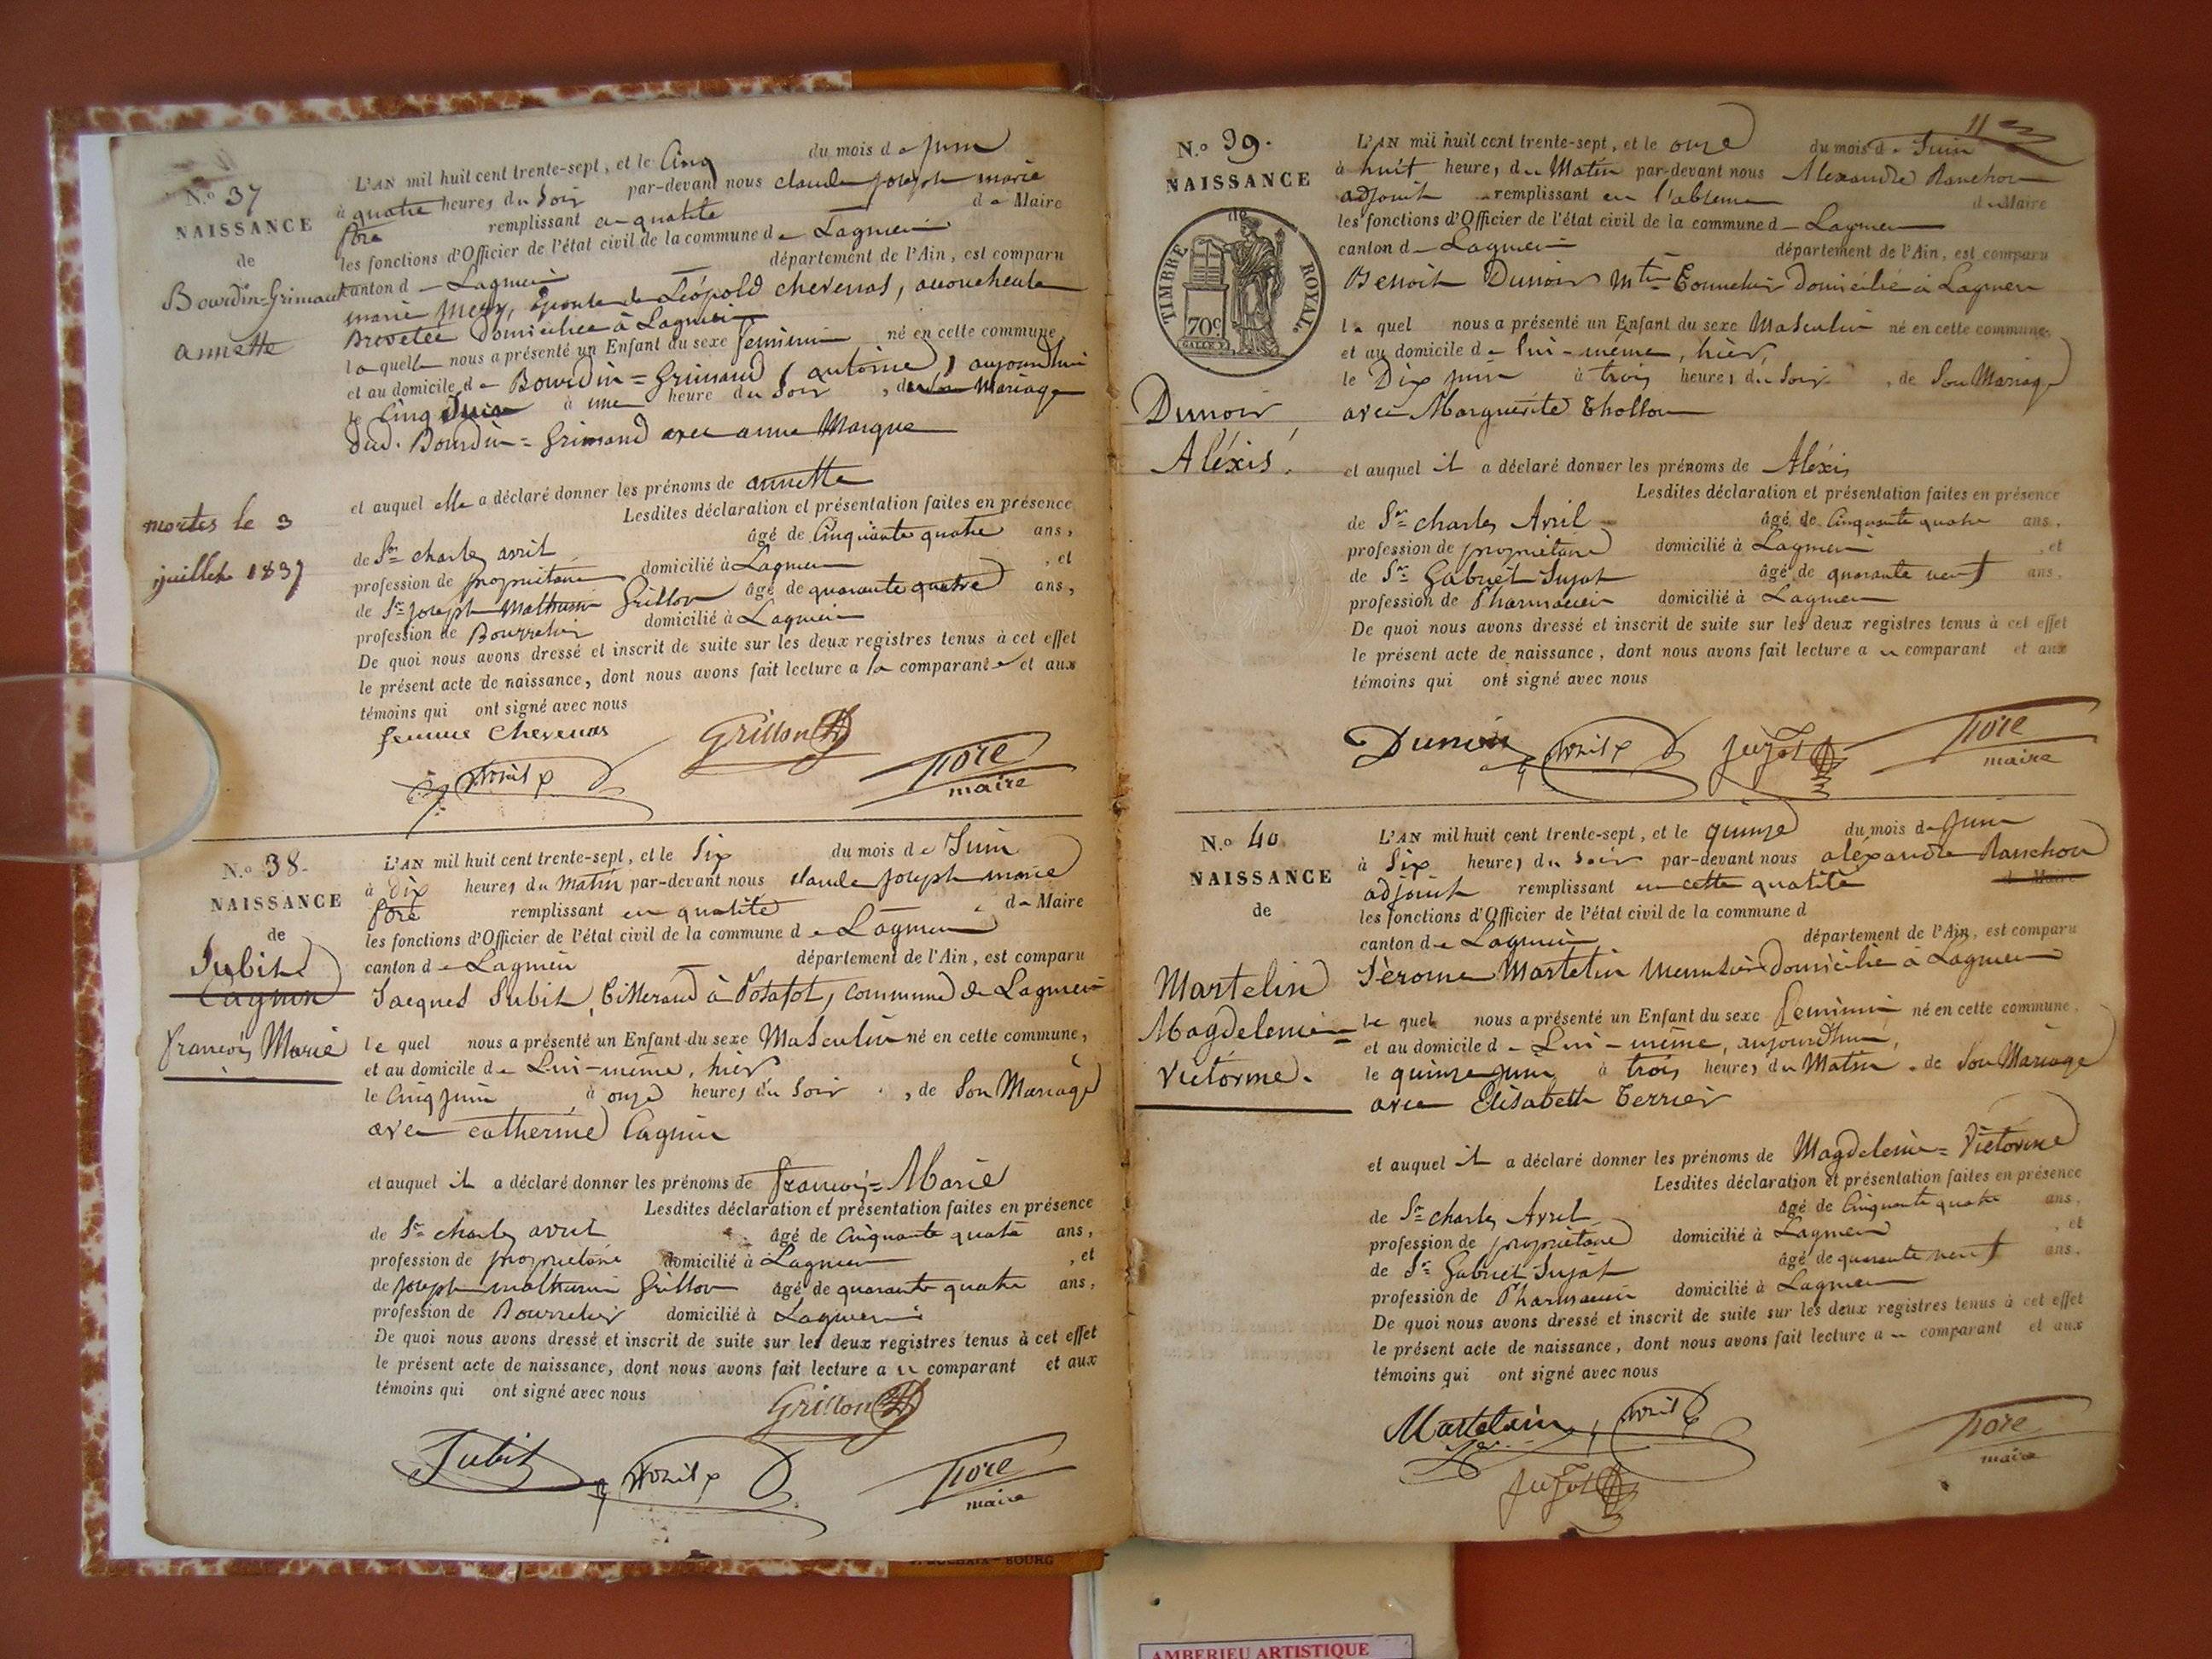 N.o 37
NAISSANCE
de
Bourdin=Grimaud
annette
mortes le 3
juillet 1837
L'AN mil huit cent trente-sept, et le Cinq du mois de Juin
à quatre heures du Soir par-devant nous claude joseph marie
fore remplissant en qualité de Maire
les fonctions d'Officier de l'état civil de la commune de Lagnieu
canton de Lagnieu département de l'Ain, est comparu
marie Mery, épouse de Léopold chevenas, accoucheuse
Brevetée domiciliée à Lagnieu
la quelle nous a présenté un Enfant du sexe feminin né en cette commune,
et au domicile de Bourdin=Grimaud (antoine), aujourd'hui
le Cinq Juin à une heure du Soir, de son Mariage
dud. Bourdin=Grimaud avec anne Marque
et auquel elle a déclaré donner les prénoms de annette
Lesdites déclaration et présentation faites en présence
de Sr charles avril âgé de Cinquante quatre ans,
profession de propriétaire domicilié à Lagnieu, et
de Sr joseph Mathurin Grillon âgé de quarante quatre ans,
profession de Bourrelier domicilié à Lagnieu
De quoi nous avons dressé et inscrit de suite sur les deux registres tenus à cet effet
le présent acte de naissance, dont nous avons fait lecture a la comparante et aux
témoins qui ont signé avec nous
femme Chevenas Grillon
Avril fore
maire
N.o 38.
NAISSANCE
de
Jubit
Cagnin
françois Marie
L'AN mil huit cent trente-sept, et le Six du mois de Juin
à dix heures du Matin par-devant nous claude joseph marie
fore remplissant en qualité de Maire
les fonctions d'Officier de l'état civil de la commune de Lagnieu
canton de Lagnieu département de l'Ain, est comparu
Jacques Jubit, Tisserand à Posafol, commune de Lagnieu
le quel nous a présenté un Enfant du sexe Masculin né en cette commune,
et au domicile de Lui-même, hier
le Cinq juin à onze heures du Soir, de Son Mariage
avec Catherine Cagnin
et auquel il a déclaré donner les prénoms de françois=Marie
Lesdites déclaration et présentation faites en présence
de Sr charles avril âgé de Cinquante quatre ans,
profession de propriétaire domicilié à Lagnieu, et
de joseph mathurin Grillon âgé de quarante quatre ans,
profession de Bourrelier domicilié à Lagnieu
De quoi nous avons dressé et inscrit de suite sur les deux registres tenus à cet effet
le présent acte de naissance, dont nous avons fait lecture a u comparant et aux
témoins qui ont signé avec nous
Grillon
Jubit Avril fore
maire
11
N.o 39.
NAISSANCE
de
TIMBRE ROYAL.
70c
Dunoir
Aléxis.
L'AN mil huit cent trente-sept, et le onze du mois de Juin
à huit heures du Matin par-devant nous Alexandre Ranchon
adjoint remplissant en l'absence du Maire
les fonctions d'Officier de l'état civil de la commune de Lagnieu
canton de Lagnieu département de l'Ain, est comparu
Benoit Dunoir Mtre Tonnelier domicilié à Lagnieu
le quel nous a présenté un Enfant du sexe Masculin né en cette commune,
et au domicile de lui-même, hier,
le Dix juin à trois heures du Soir, de Son Mariage
avec Marguerite Thollon
et auquel il a déclaré donner les prénoms de Aléxis
Lesdites déclaration et présentation faites en présence
de Sr charles Avril âgé de Cinquante quatre ans,
profession de propriétaire domicilié à Lagnieu, et
de Sr Gabriel Jujat âgé de quarante neuf ans,
profession de Pharmacien domicilié à Lagnieu
De quoi nous avons dressé et inscrit de suite sur les deux registres tenus à cet effet
le présent acte de naissance, dont nous avons fait lecture a u comparant et aux
témoins qui ont signé avec nous
Dunoir Avril Jujat fore
maire
N.o 40
NAISSANCE
de
Martelin
Magdeleine=
Victorine.
L'AN mil huit cent trente-sept, et le quinze du mois de Juin
à Six heures du Soir par-devant nous aléxandre Ranchon
adjoint remplissant en cette qualité d Maire
les fonctions d'Officier de l'état civil de la commune d
canton de Lagnieu département de l'Ain, est comparu
Jérome Martelin Menuisier domicilié à Lagnieu
le quel nous a présenté un Enfant du sexe feminin né en cette commune,
et au domicile de Lui-même, aujourd'hui,
le quinze juin à trois heures du Matin, de Son Mariage
avec Elisabeth Terrier
et auquel il a déclaré donner les prénoms de Magdeleine=Victorine
Lesdites déclaration et présentation faites en présence
de Sr charles Avril âgé de Cinquante quatre ans,
profession de propriétaire domicilié à Lagnieu, et
de Sr Gabriel Jujat âgé de quarante neuf ans,
profession de Pharmacien domicilié à Lagnieu
De quoi nous avons dressé et inscrit de suite sur les deux registres tenus à cet effet
le présent acte de naissance, dont nous avons fait lecture a u comparant et aux
témoins qui ont signé avec nous
Martelin Avril fore
maire
Jujat
BOURG
AMBERIEU ARTISTIQUE